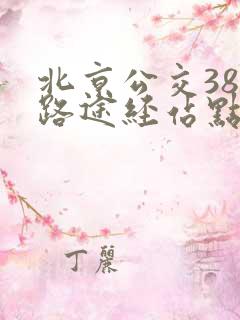 北京公交38
路途经佔點
丁麗